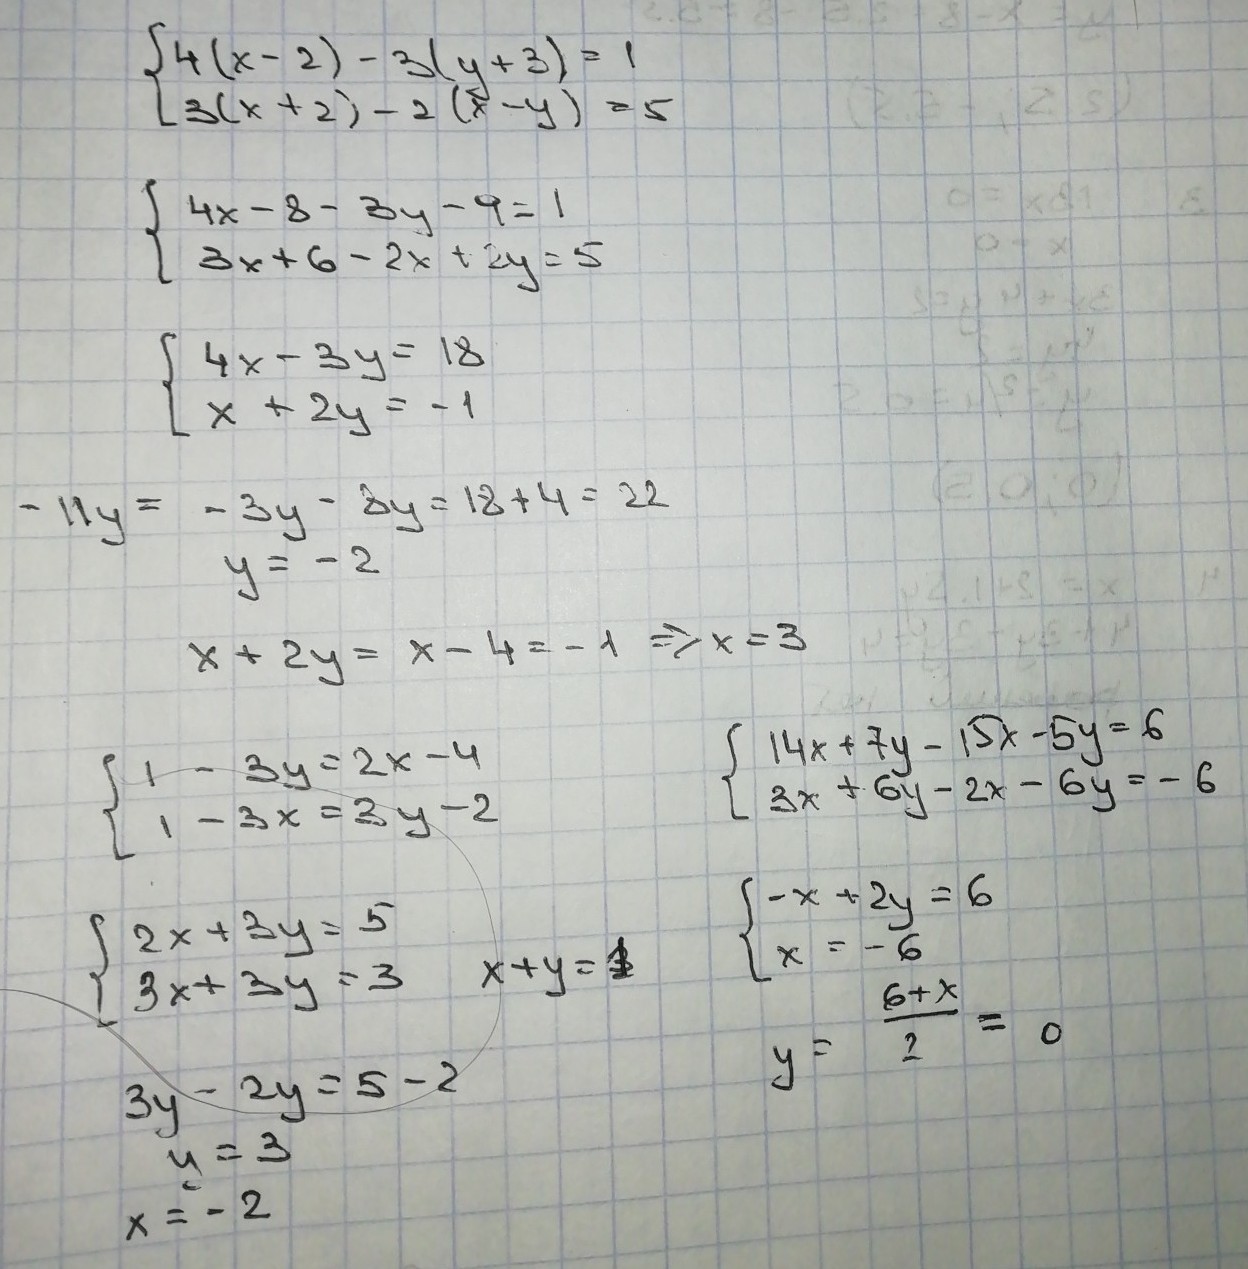 4(x-2) - 3(y+3) = 1
3(x+2) - 2(x-y) = 5
4x - 8 - 3y - 9 = 1
3x + 6 - 2x + 2y = 5
4x - 3y = 18
x + 2y = -1
-11y = -3y - 8y = 18 + 4 = 22
y = -2
x + 2y = x - 4 = -1 => x = 3
1 - 3y = 2x - 4
1 - 3x = 3y - 2
2x + 3y = 5
3x + 3y = 3
x + y = 1
3y - 2y = 5 - 2
y = 3
x = -2
14x + 7y - 15x - 5y = 6
3x + 6y - 2x - 6y = -6
-x + 2y = 6
x = -6
y = (6+x)/2 = 0